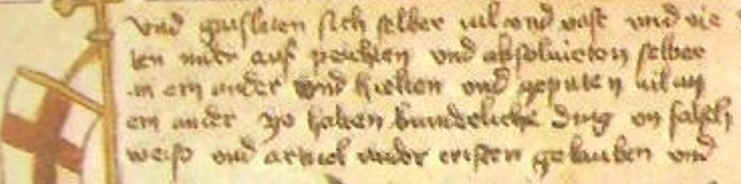 vnd gaisleten sich selber vil vnd vast vnd vie
len nider auf peichten vnd absoluieton selber
an ein ander vnd hielten vnd geputen vil an
ein ander zo halten wunderliche ding vn falsch
weiß vnd artickel wider cristen gelauben vnd